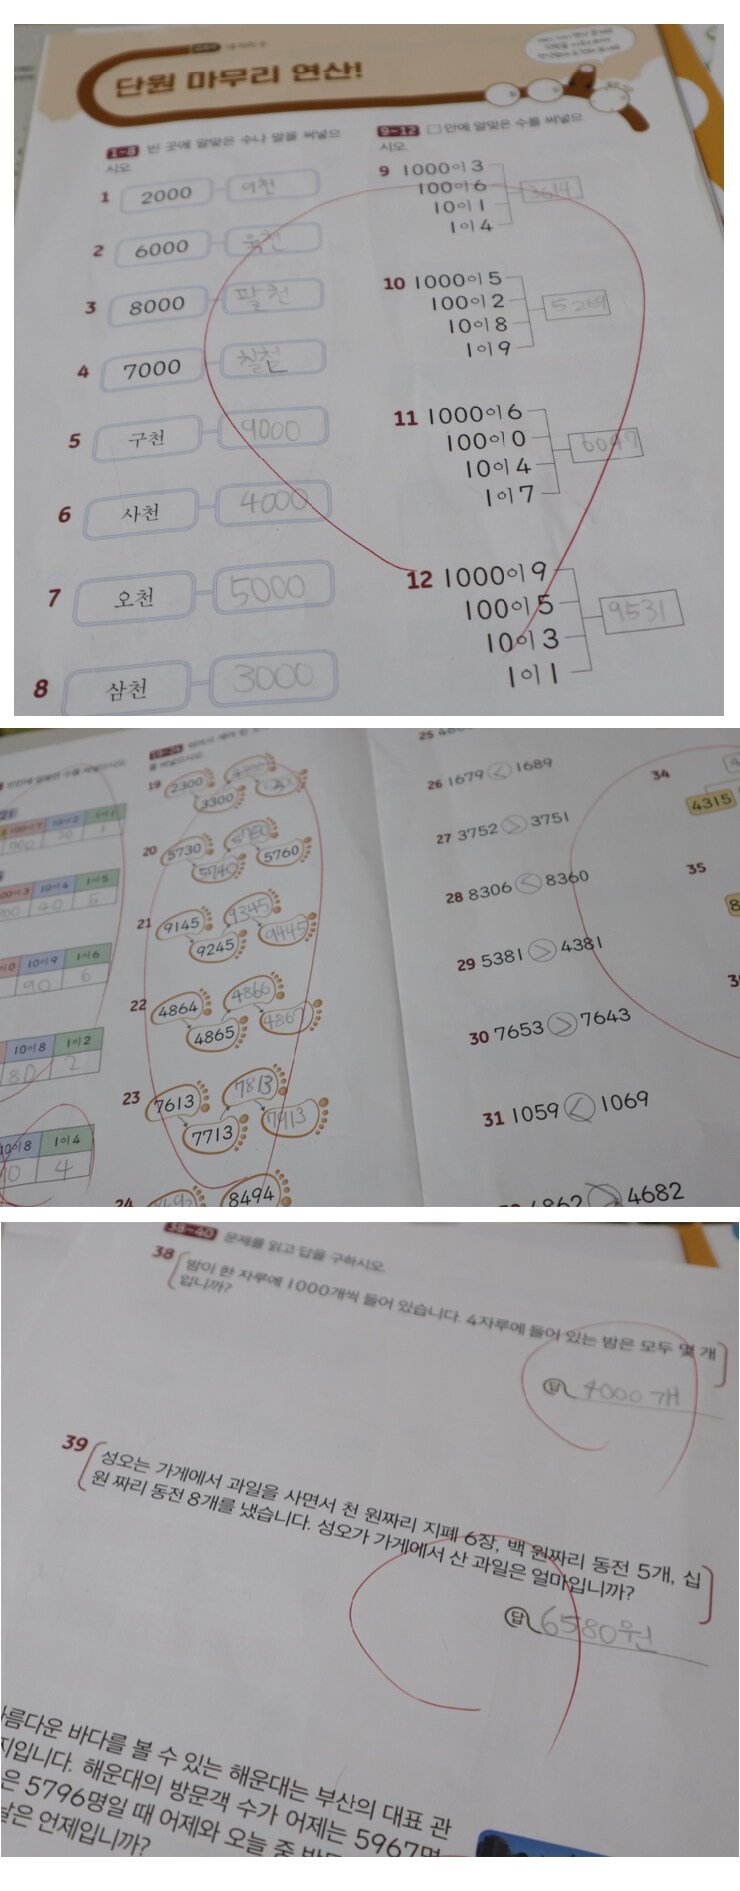 단원 마무리 연산!
1~8 빈 곳에 알맞은 수나 말을 써넣으
시오.
1 2000 이천
2 6000 육천
3 8000 팔천
4 7000 칠천
5 구천 9000
6 사천 4000
7 오천 5000
8 삼천 3000
9~12 □ 안에 알맞은 수를 써넣으
시오.
9 1000이 3
100이 6
10이 1
1이 4
3614
10 1000이 5
100이 2
10이 8
1이 9
5289
11 1000이 6
100이 0
10이 4
1이 7
6047
12 1000이 9
100이 5
10이 3
1이 1
9531
10이 2
1
10이 4 1이 5
40 5
10이 9 1이 6
90 6
10이 8 1이 2
80 2
10이 8 1이 4
4
19 2300 3300
20 5730 5740 5750 5760
21 9145 9245 9345 9445
22 4864 4865 4866 4867
23 7613 7713 7813 7913
24 8494
25
26 1679 < 1689
27 3752 > 3751
28 8306 < 8360
29 5381 > 4381
30 7653 > 7643
31 1059 < 1069
4862 > 4682
34
4315
35
38~40 문제를 읽고 답을 구하시오.
38 밤이 한 자루에 1000개씩 들어 있습니다. 4자루에 들어 있는 밤은 모두 몇 개
입니까?
답 4000개
39 성오는 가게에서 과일을 사면서 천 원짜리 지폐 6장, 백 원짜리 동전 5개, 십
원 짜리 동전 8개를 냈습니다. 성오가 가게에서 산 과일은 얼마입니까?
답 6580원
아름다운 바다를 볼 수 있는 해운대는 부산의 대표 관
지입니다. 해운대의 방문객 수가 어제는 5967명
은 5796명일 때 어제와 오늘 중
날은 언제입니까?